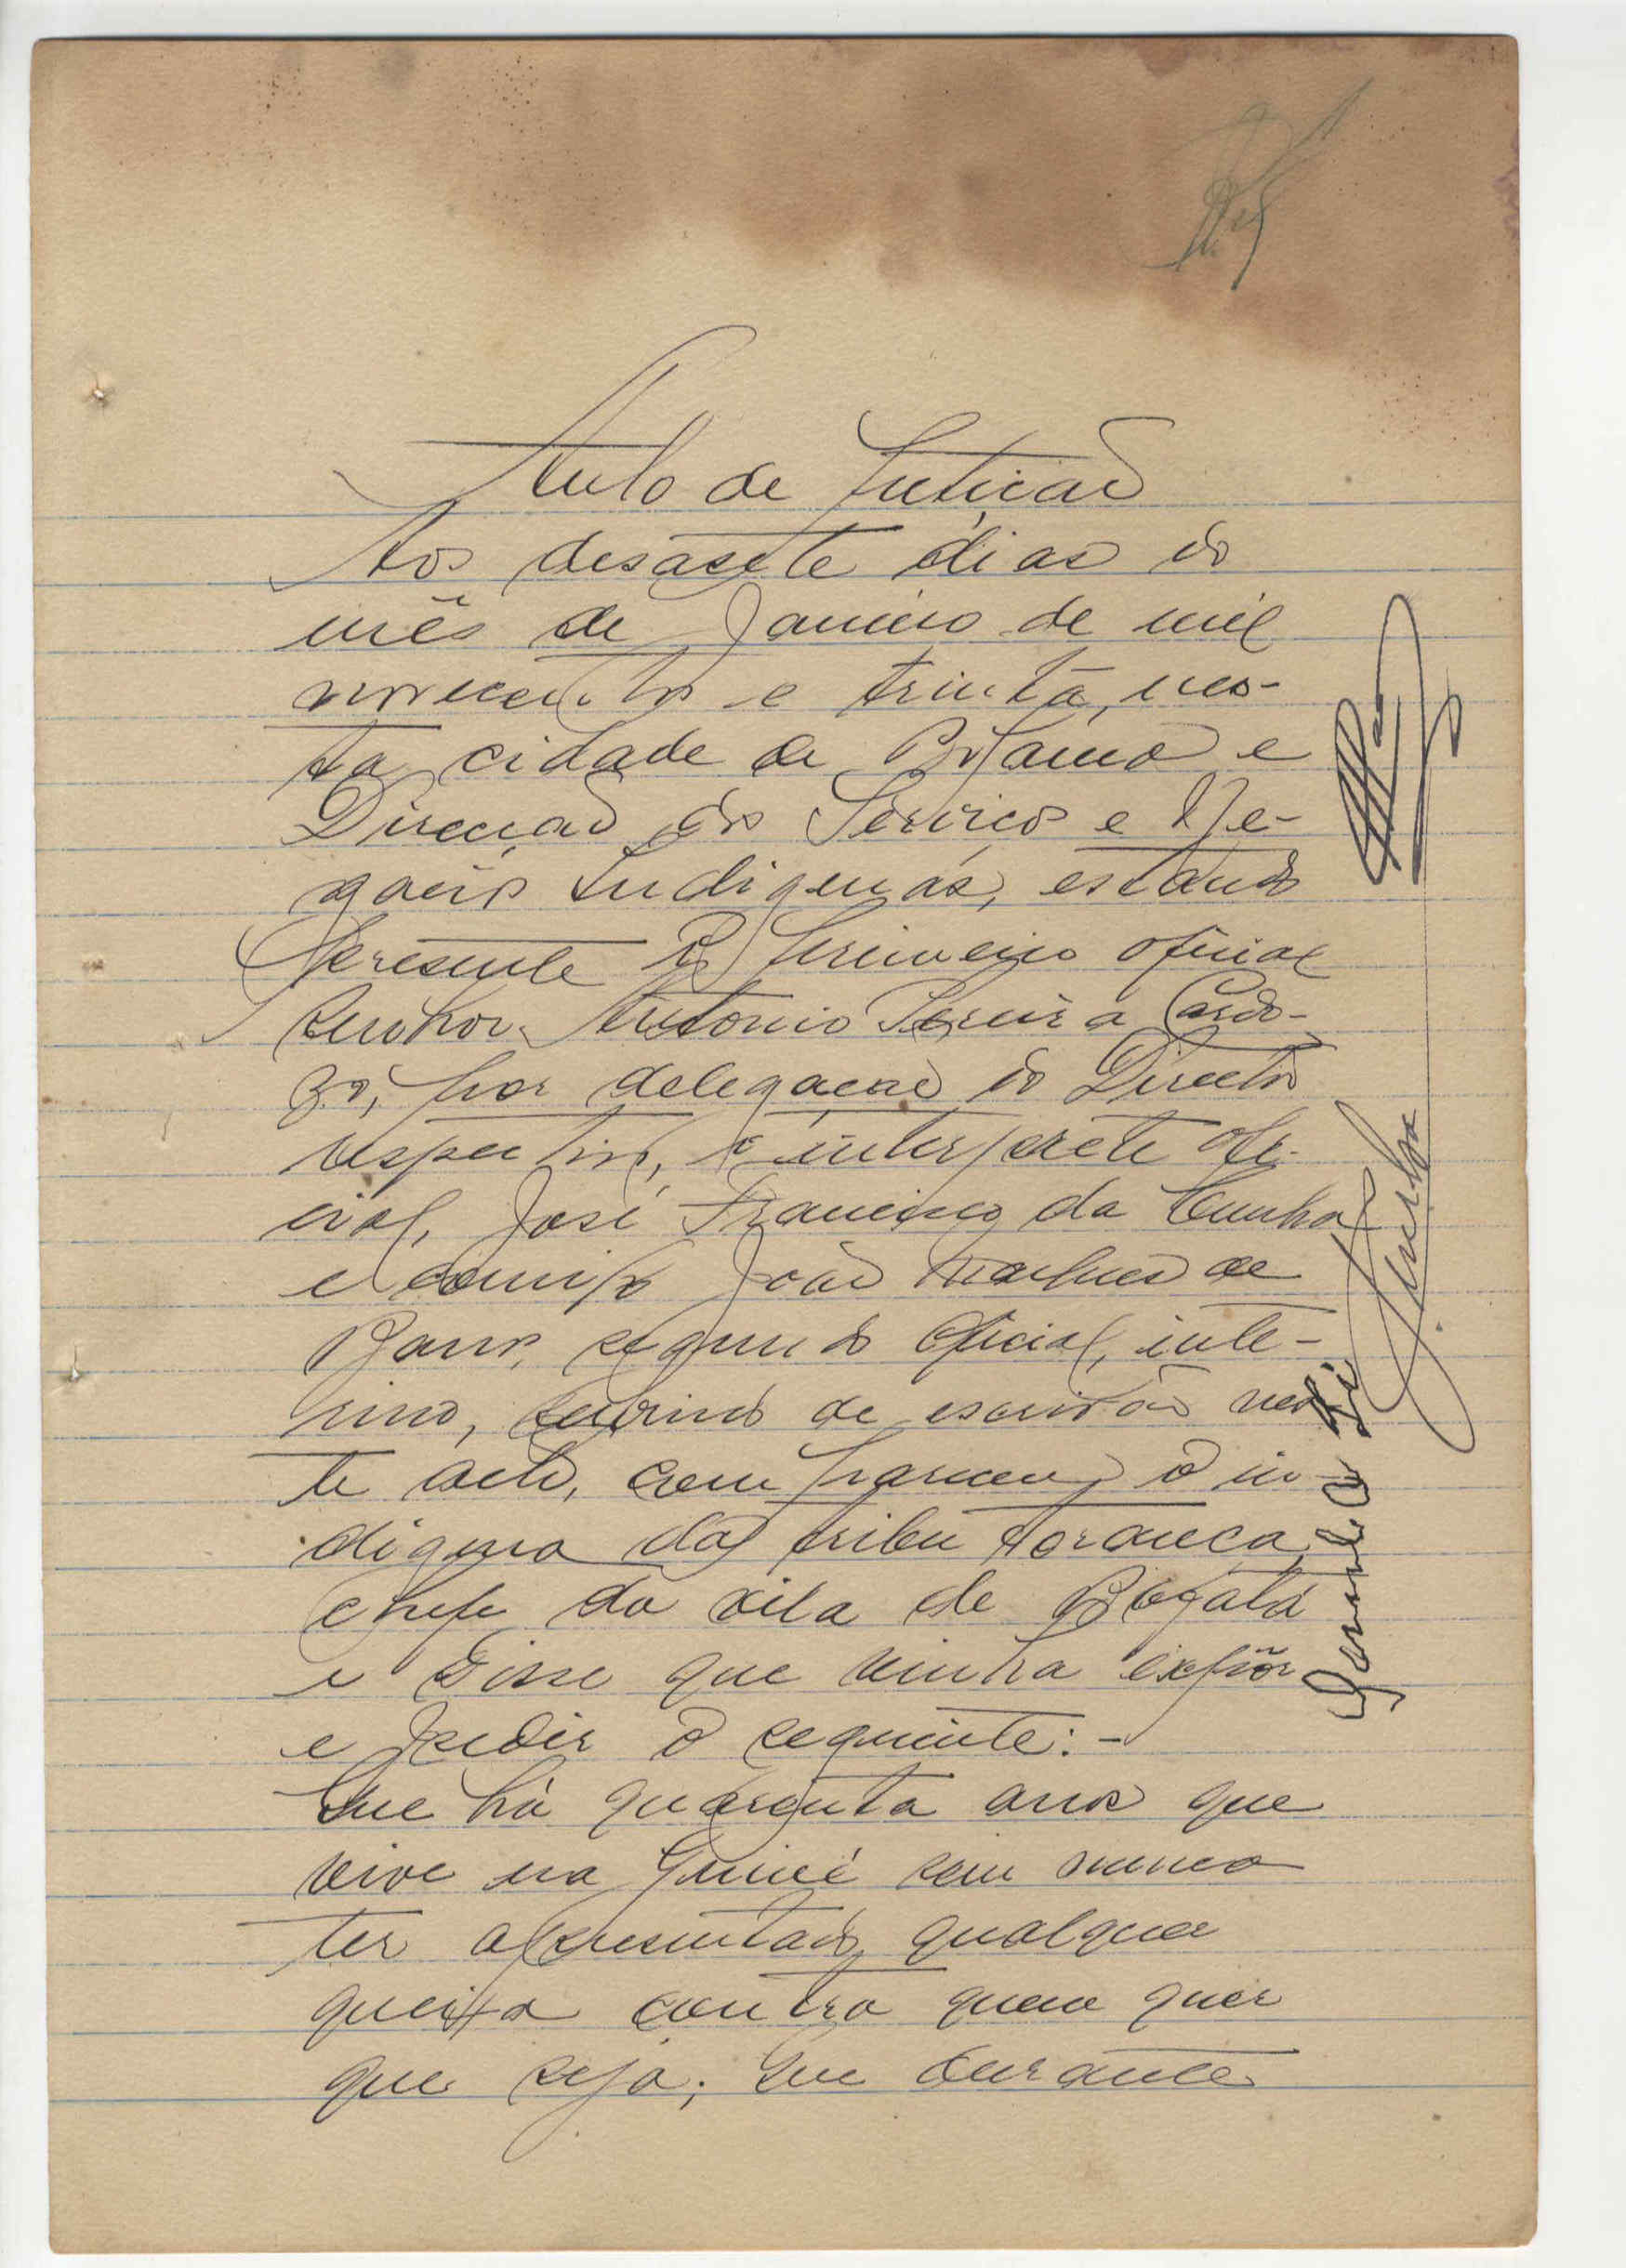 Auto de petição
Aos desasete dias do
mês de Janeiro de mil
novecentos e trinta, nes-
ta cidade de Bolama e
Direcção dos Serviços e Ne-
gocios Indigenas, estando
presente o primeiro oficial
Senhor Antonio Pereira Cardo-
zo, por delegação do Director
respectivo, o interprete ofi-
cial, José Francisco da Cunha
e comigo João Marques de
Barros, segundo oficial, inte-
rino, servindo de escrivão nes-
te acto, compareceu o in-
digena da tribu
chefe da vila de
e disse que vinha expôr
e pedir o seguinte: -
Que há quarenta anos que
vive na Guiné sem nunca
ter apresentado qualquer
queixa contra quem quer
que seja; que durante
Cunha